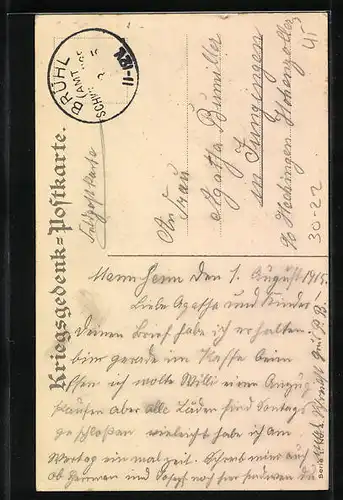 Kriegsgedenk=Postkarte.
BRÜHL
(AMT
SCHW
11-12V.
Feldpostkarte
An
Frau
Agatha Bumiller
in Jungingen
b/ Hechingen Hohenzoller
45
30-22
Mannheim den 1. August 1915.
Liebe Agatha und Kinder!
Deinen Brief habe ich erhalten
bin gerade im Kaffe beim
Essen ich wolte Willi einen Anzug
kaufen aber alle Läden sind Sontags
geschloßen vieleicht habe ich am
Wertag ein mal zeit. Schreib mir auch
ob Herman und Josef noch